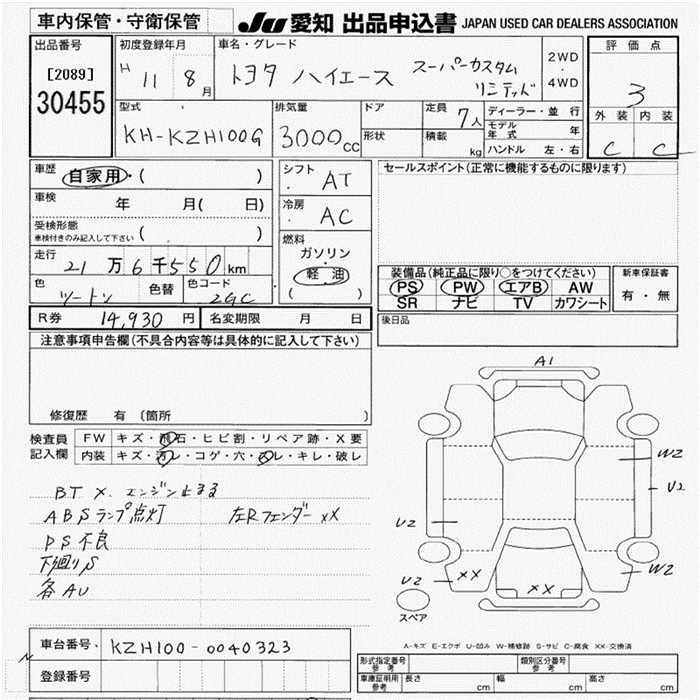 車内保管・守衛保管
JU 愛知 出品申込書 JAPAN USED CAR DEALERS ASSOCIATION
出品番号
[2089]
30455
初度登録年月
H 11 8月
車名・グレード
トヨタ ハイエース スーパーカスタム
リミテッド
2WD
・
4WD
評価点
3
外装 内装
C C
型式
KH-KZH100G
排気量
3000cc
ドア
形状
定員
7人
積載
kg
ディーラー・並行
モデル年式 年
ハンドル 左・右
車歴
自家用・( )
車検
年 月( 日)
受検形態
車検付きのみ記入して下さい ( )
走行
21万6千550km
色
ツートン
色替
色コード
2GC
シフト
AT
冷房
AC
燃料
ガソリン
軽油
( )
セールスポイント(正常に機能するものに限ります)
装備品(純正品に限り○をつけてください)
PS PW エアB AW
SR ナビ TV カワシート
新車保証書
有・無
後日品
R券 14,930円
名変期限 月 日
注意事項申告欄(不具合内容等は具体的に記入して下さい)
修復歴 有 (箇所
検査員
記入欄
FW キズ・飛石・ヒビ割・リペア跡・X要
内装 キズ・汚レ・コゲ・穴・スレ・キレ・破レ
BT X. エンジン止まる
ABSランプ点灯 左Rフェンダー XX
PS不良
下廻りS
各AU
A1
W2
U2
U2
W2
XX
XX
U2
スペア
A-キズ E-エクボ U-凹み W-補修跡 S-サビ C-腐食 XX-交換済
車台番号
KZH100-0040323
登録番号
形式指定番号
参考
類別区分番号
参考
車庫証明用
参考
長さ cm
幅 cm
高さ cm